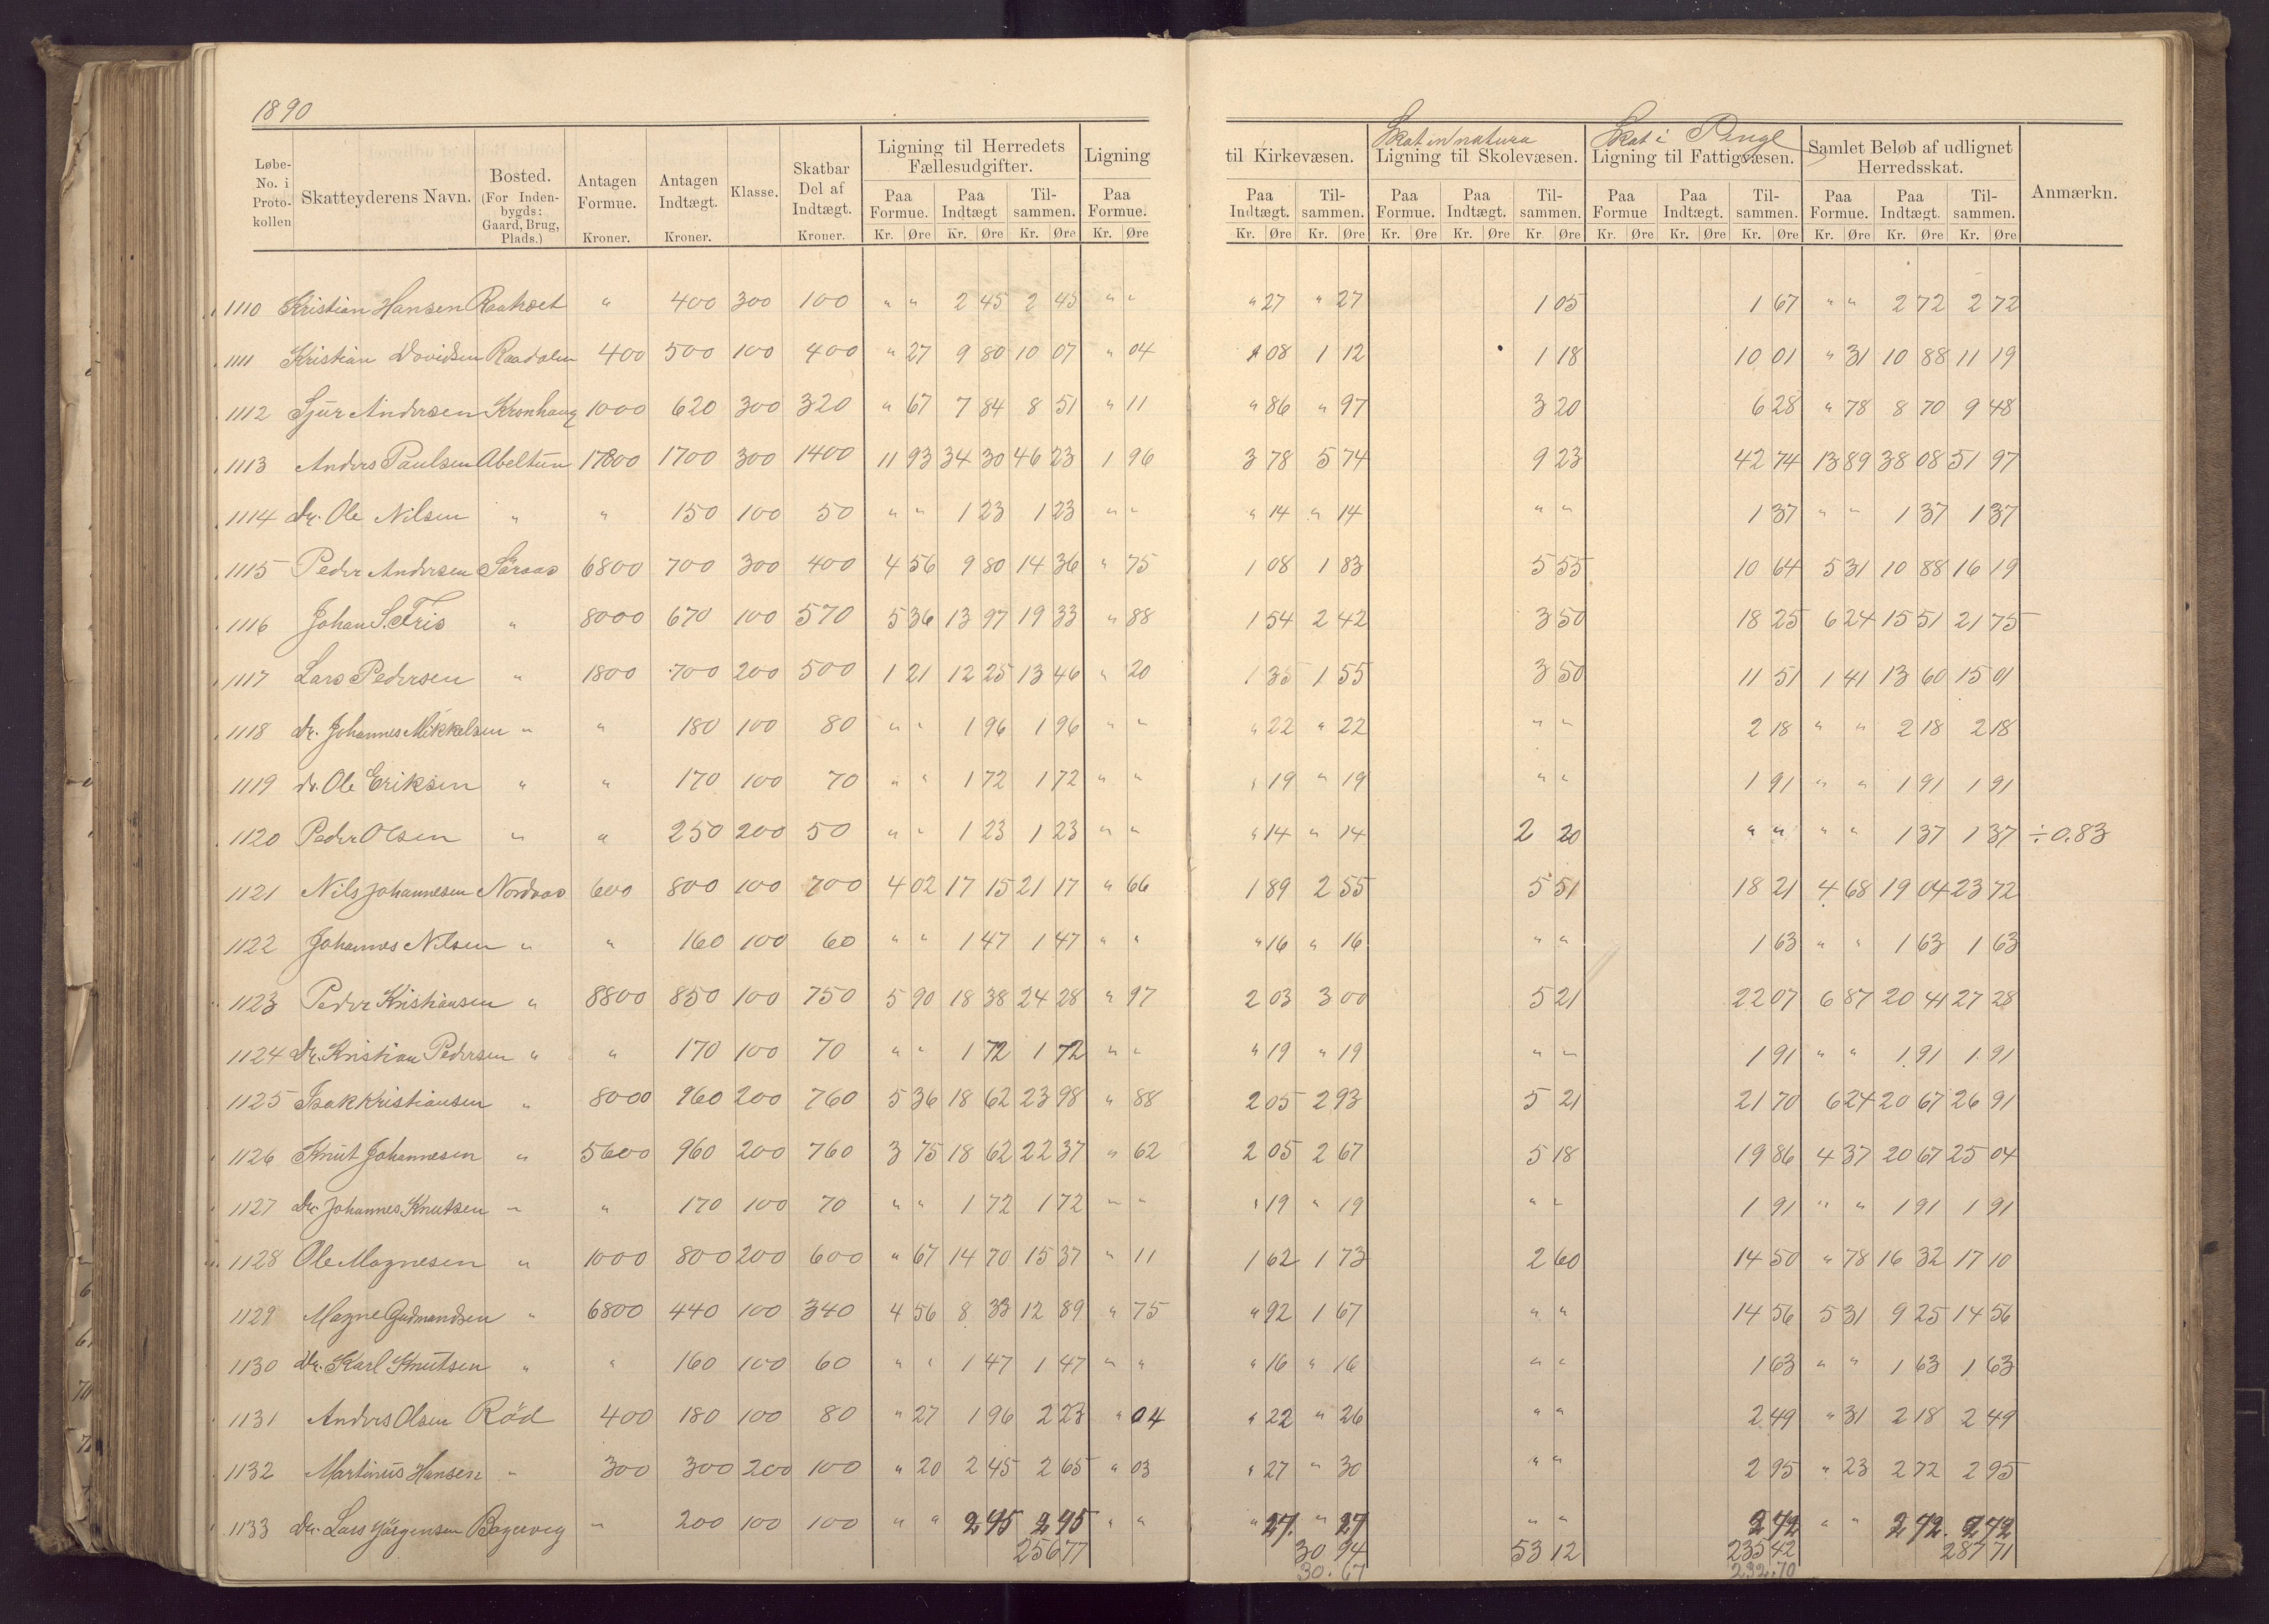 1890
Løbe-No. i Proto-kollen | Skatteyderens Navn. | Bosted. (For Inden-bygds: Gaard, Brug, Plads.) | Antagen Formue. Kroner. | Antagen Indtægt. Kroner. | Klasse. | Skatbar Del af Indtægt. Kroner. | Ligning til Herredets Fællesudgifter. Paa Formue. Kr. Øre | Paa Indtægt Kr. Øre | Til-sammen. Kr. Øre | Ligning Paa Formue. Kr. Øre | til Kirkevæsen. Paa Indtægt. Kr. Øre | Til-sammen. Kr. Øre | Skat in natura Ligning til Skolevæsen. Paa Formue. Kr. Øre | Paa Indtægt. Kr. Øre | Til-sammen. Kr. Øre | Skat i Penge Ligning til Fattigvæsen. Paa Formue Kr. Øre | Paa Indtægt. Kr. Øre | Til-sammen. Kr. Øre | Samlet Beløb af udlignet Herredsskat. Paa Formue. Kr. Øre | Paa Indtægt. Kr. Øre | Til-sammen. Kr. Øre | Anmærkn.
1110 Kristian Hansen Raaholt " 400 300 100 " " 2 45 2 45 " " " 27 " 27 1 05 1 67 " " 2 72 2 72
1111 Kristian Davidsen Raadalen 400 500 100 400 " 27 9 80 10 07 " 04 1 08 1 12 1 18 10 01 " 31 10 88 11 19
1112 Sjur Andersen Kronhaug 1000 620 300 320 " 67 7 84 8 51 " 11 " 86 " 97 3 20 6 28 " 78 8 70 9 48
1113 Anders Paulsen Abeltun 17800 1700 300 1400 11 93 34 30 46 23 1 96 3 78 5 74 9 23 42 74 13 89 38 08 51 97
1114 Dr. Ole Nilsen " " 150 100 50 " " 1 23 1 23 " " " 14 " 14 " " 1 37 " " 1 37 1 37
1115 Peder Andersen Søraas 6800 700 300 400 4 56 9 80 14 36 " 75 1 08 1 83 5 55 10 64 5 31 10 88 16 19
1116 Johan S. Friis " 8000 670 100 570 5 36 13 97 19 33 " 88 1 54 2 42 3 50 18 25 6 24 15 51 21 75
1117 Lars Pedersen " 1800 700 200 500 1 21 12 25 13 46 " 20 1 35 1 55 3 50 11 51 1 41 13 60 15 01
1118 dr. Johannes Mikkelsen " " 180 100 80 " " 1 96 1 96 " " " 22 " 22 " " 2 18 " " 2 18 2 18
1119 dr. Ole Eriksen " " 170 100 70 " " 1 72 1 72 " " " 19 " 19 " " 1 91 " " 1 91 1 91
1120 Peder Olsen " " 250 200 50 " " 1 23 1 23 " " " 14 " 14 2 20 " " " " 1 37 1 37 ÷ 0.83
1121 Nils Johannesen Nordaas 600 800 100 700 4 02 17 15 21 17 " 66 1 89 2 55 5 51 18 21 4 68 19 04 23 72
1122 Johannes Nilsen " " 160 100 60 " " 1 47 1 47 " " " 16 " 16 " " 1 63 " " 1 63 1 63
1123 Peder Kristiansen " 8800 850 100 750 5 90 18 38 24 28 " 97 2 03 3 00 5 21 22 07 6 87 20 41 27 28
1124 Dr. Kristian Pedersen " " 170 100 70 " " 1 72 1 72 " " " 19 " 19 " " 1 91 " " 1 91 1 91
1125 Isak Kristiansen " 8000 960 200 760 5 36 18 62 23 98 " 88 2 05 2 93 5 21 21 70 6 24 20 67 26 91
1126 Knut Johannesen " 5600 960 200 760 3 75 18 62 22 37 " 62 2 05 2 67 5 18 19 86 4 37 20 67 25 04
1127 Dr. Johannes Knutsen " " 170 100 70 " " 1 72 1 72 " " " 19 " 19 " " 1 91 " " 1 91 1 91
1128 Ole Magnesen " 1000 800 200 600 " 67 14 70 15 37 " 11 1 62 1 73 2 60 14 50 " 78 16 32 17 10
1129 Magne Gudmandsen " 6800 440 100 340 4 56 8 33 12 89 " 75 " 92 1 67 " " 14 56 5 31 9 25 14 56
1130 Dr. Karl Knutsen " " 160 100 60 " " 1 47 1 47 " " " 16 " 16 " " 1 63 " " 1 63 1 63
1131 Anders Olsen Röd 400 180 100 80 " 27 1 96 2 23 " 04 " 22 " 26 " " 2 49 " 31 2 18 2 49
1132 Martinus Hansen " 300 300 200 100 " 20 2 45 2 65 " 03 " 27 " 30 " " 2 95 " 23 2 72 2 95
1133 Dr. Lars Jörgensen " 200 100 100 " " 2 45 2 45 " " " 27 " 27 " " 2 72 " " 2 72 2 72
256 77 30 94 53 12 235 42 287 71
30.67 232.70